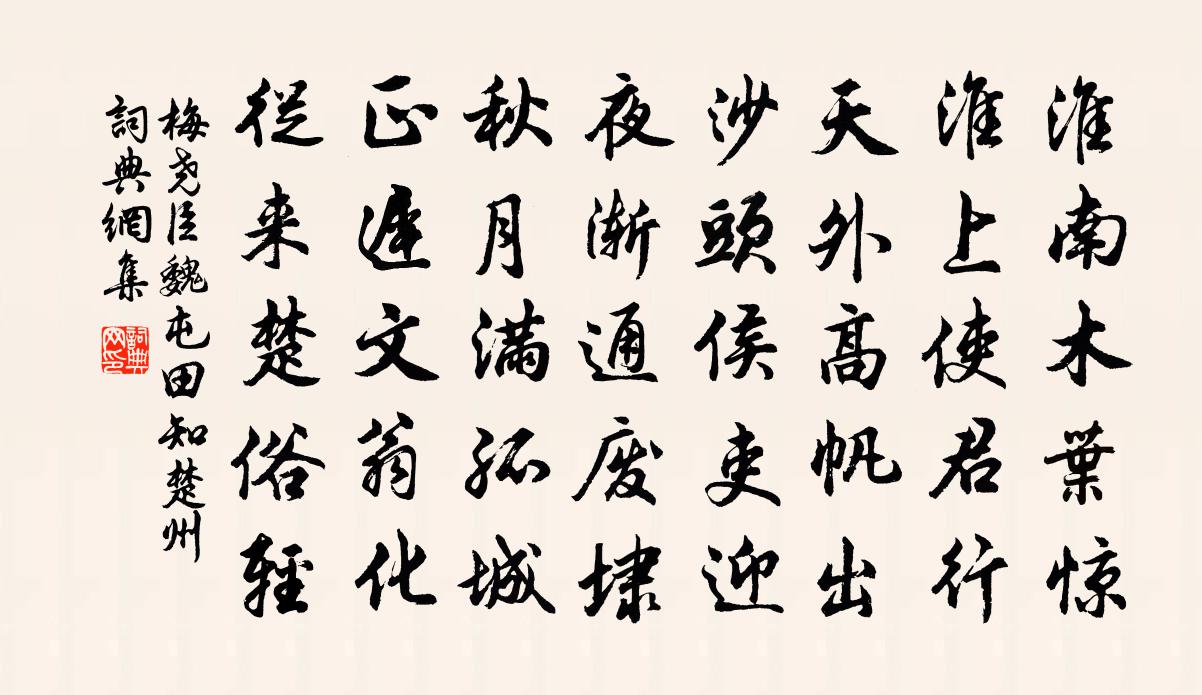 淮南木葉惊
淮上使君行
天外高帆出
沙頭侯吏迎
夜渐通废埭
秋月满孤城
正遲文翁化
從来楚俗輕
梅尧臣魏屯田知楚州
詞典網集
詞典网印